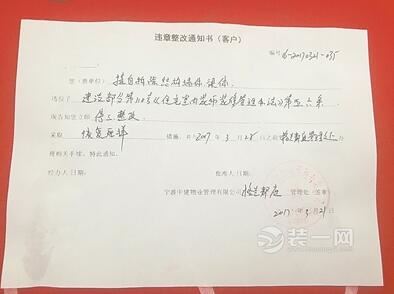 违章整改通知书（客户）
编号：6-20170321-035
您（贵单位）：擅自拆除结构墙体混体
违反了 建设部令第110号《住宅室内装饰装修管理办法》第五、六条
现告知您立即 停工整改
采取 恢复原样 措施，并2017年3月28日之前 办
理相关手续。特此通知。
经办人/日期： 批准人/日期：
宁波中建物业管理有限公司 管理处（签章）
2017年3月21日
装一网